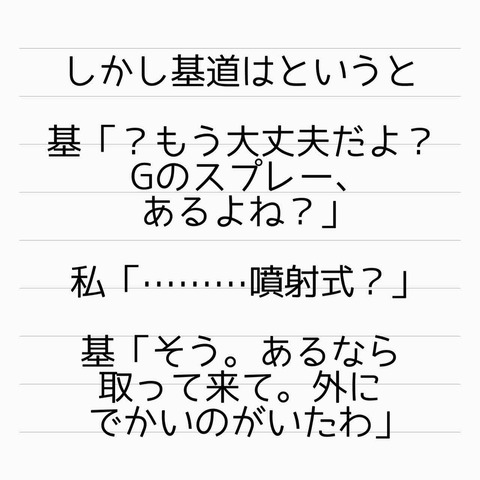 しかし基道はというと
基「？もう大丈夫だよ？
Gのスプレー、
あるよね？」
私「………噴射式？」
基「そう。あるなら
取って来て。外に
でかいのがいたわ」